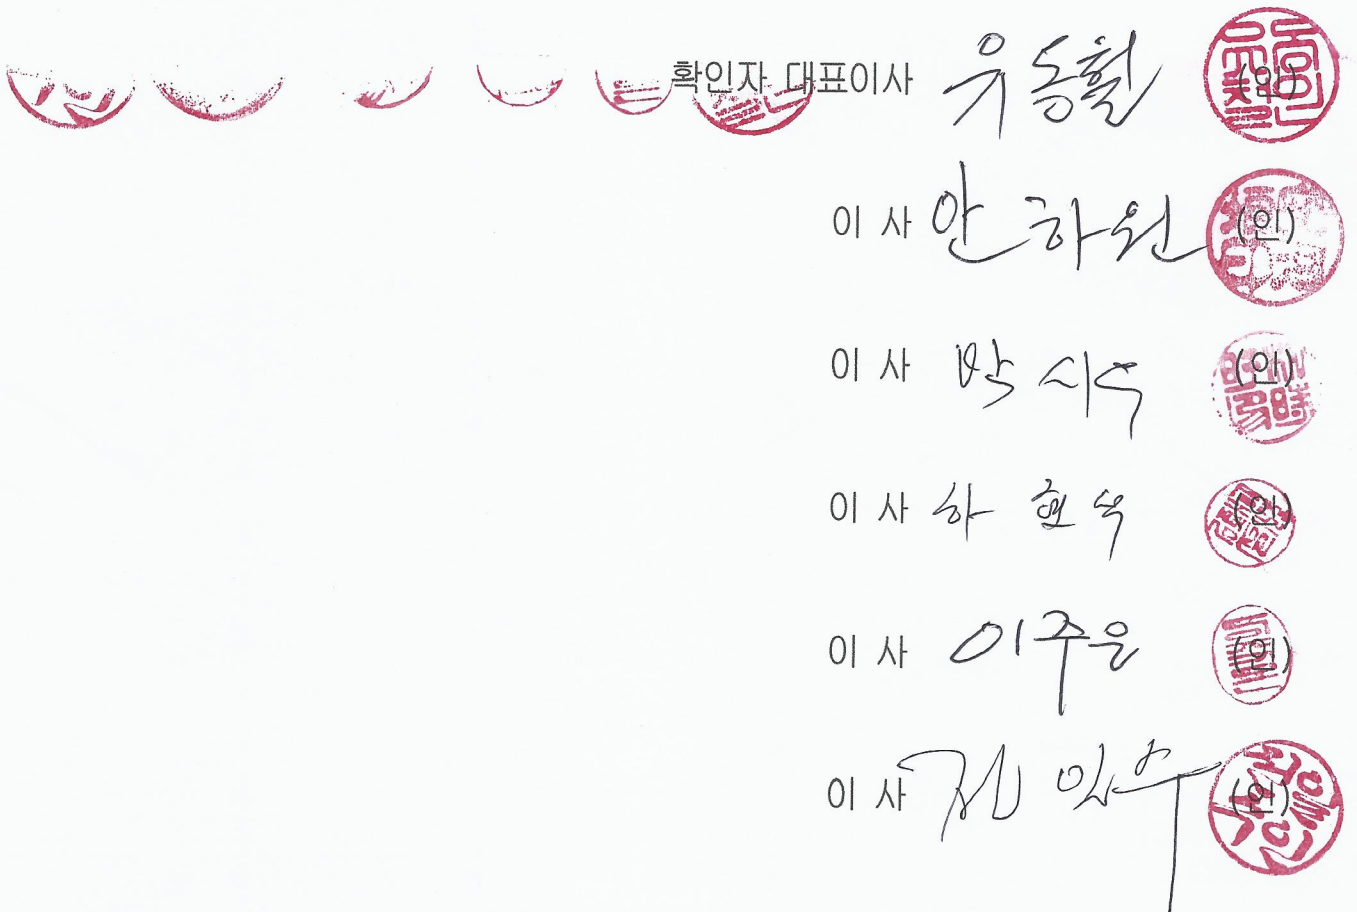 확인자 대표이사 유동철 (인)
이 사 안하원 (인)
이 사 박시수 (인)
이 사 하현석 (인)
이 사 이주은 (인)
이 사 (인)